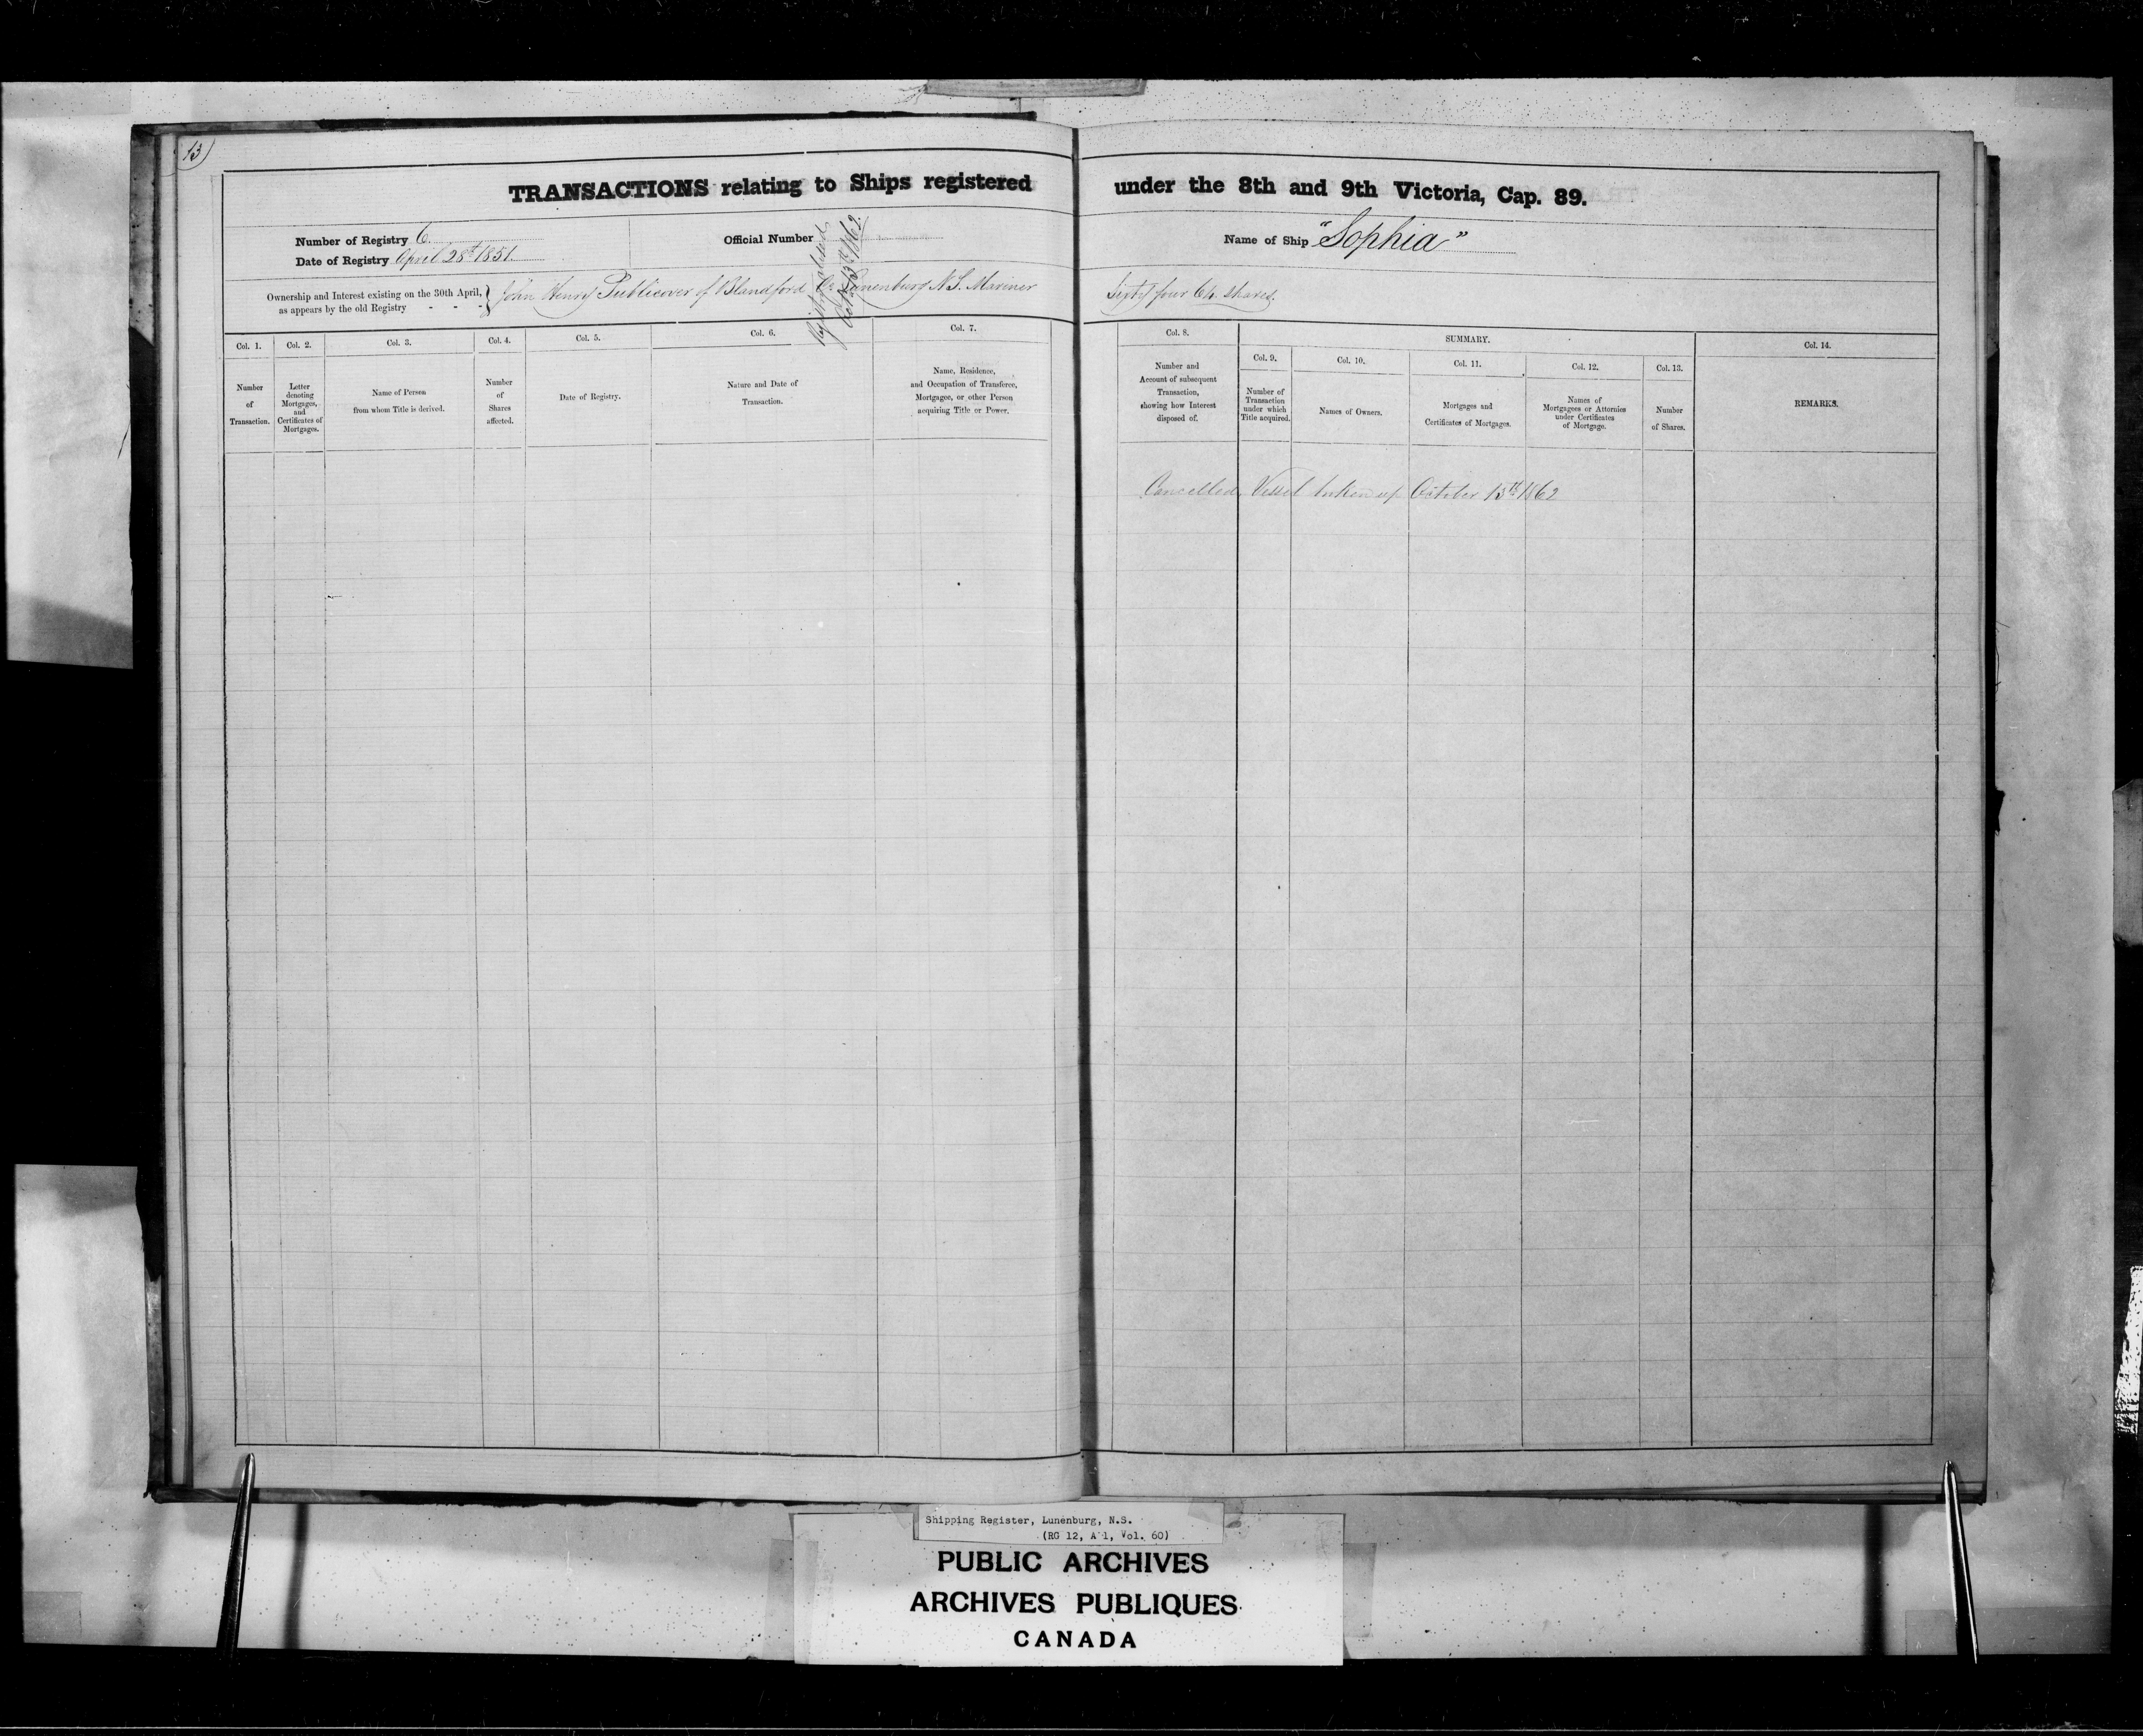 13
TRANSACTIONS relating to Ships registered under the 8th and 9th Victoria, Cap. 89.
Number of Registry 6.
Official Number
Name of Ship "Sophia"
Date of Registry April 28th 1851.
Registry closed
Oct 13th 1862
Ownership and Interest existing on the 30th April,
as appears by the old Registry - - -
John Henry Publicover of Blandford Co Lunenburg N.S. Mariner Sixty four 64 shares.
Col. 1.
Number
of
Transaction.
Col. 2.
Letter
denoting
Mortgages,
and
Certificates of
Mortgages.
Col. 3.
Name of Person
from whom Title is derived.
Col. 4.
Number
of
Shares
affected.
Col. 5.
Date of Registry.
Col. 6.
Nature and Date of
Transaction.
Col. 7.
Name, Residence,
and Occupation of Transferee,
Mortgagee, or other Person
acquiring Title or Power.
Col. 8.
Number and
Account of subsequent
Transaction,
showing how Interest
disposed of.
SUMMARY.
Col. 9.
Number of
Transaction
under which
Title acquired.
Col. 10.
Names of Owners.
Col. 11.
Mortgages and
Certificates of Mortgages.
Col. 12.
Names of
Mortgagees or Attornies
under Certificates
of Mortgage.
Col. 13.
Number
of Shares.
Col. 14.
REMARKS.
Cancelled, Vessel broken up October 13th 1862
Shipping Register, Lunenburg, N.S.
(RG 12, A 1, Vol. 60)
PUBLIC ARCHIVES
ARCHIVES PUBLIQUES
CANADA